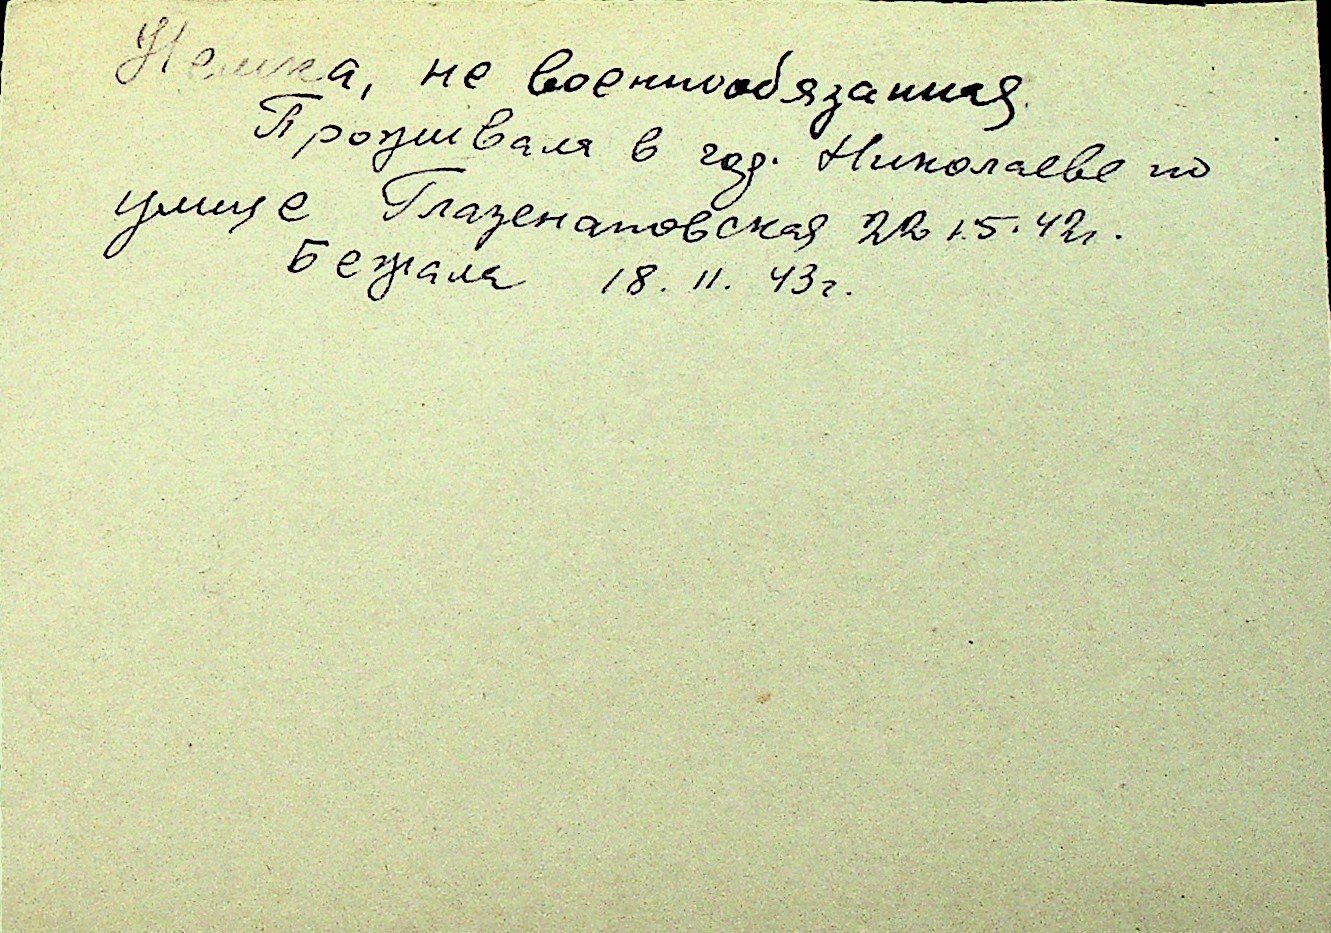 Немка, не военнообязанная.
Проживала в гор. Николаеве по
улице Глазенаповская 22 1.5.42г.
Бежала 18.11.43г.